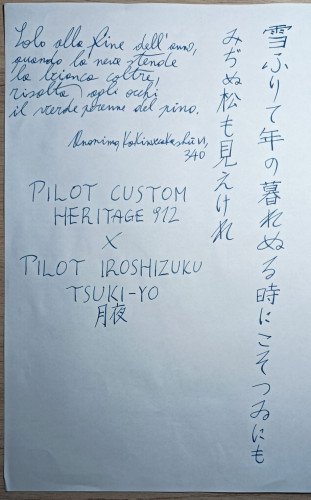 Solo alla fine dell'anno,
quando la neve stende
la bianca coltre,
risalta agli occhi
il verde perenne del pino.
Anonimo, Kokinwakashū VI,
340
PILOT CUSTOM
HERITAGE 912
X
PILOT IROSHIZUKU
TSUKI-YO
月夜
雪ふりて年の暮れぬる時にこそつゐにも
みぢぬ松も見えけれ